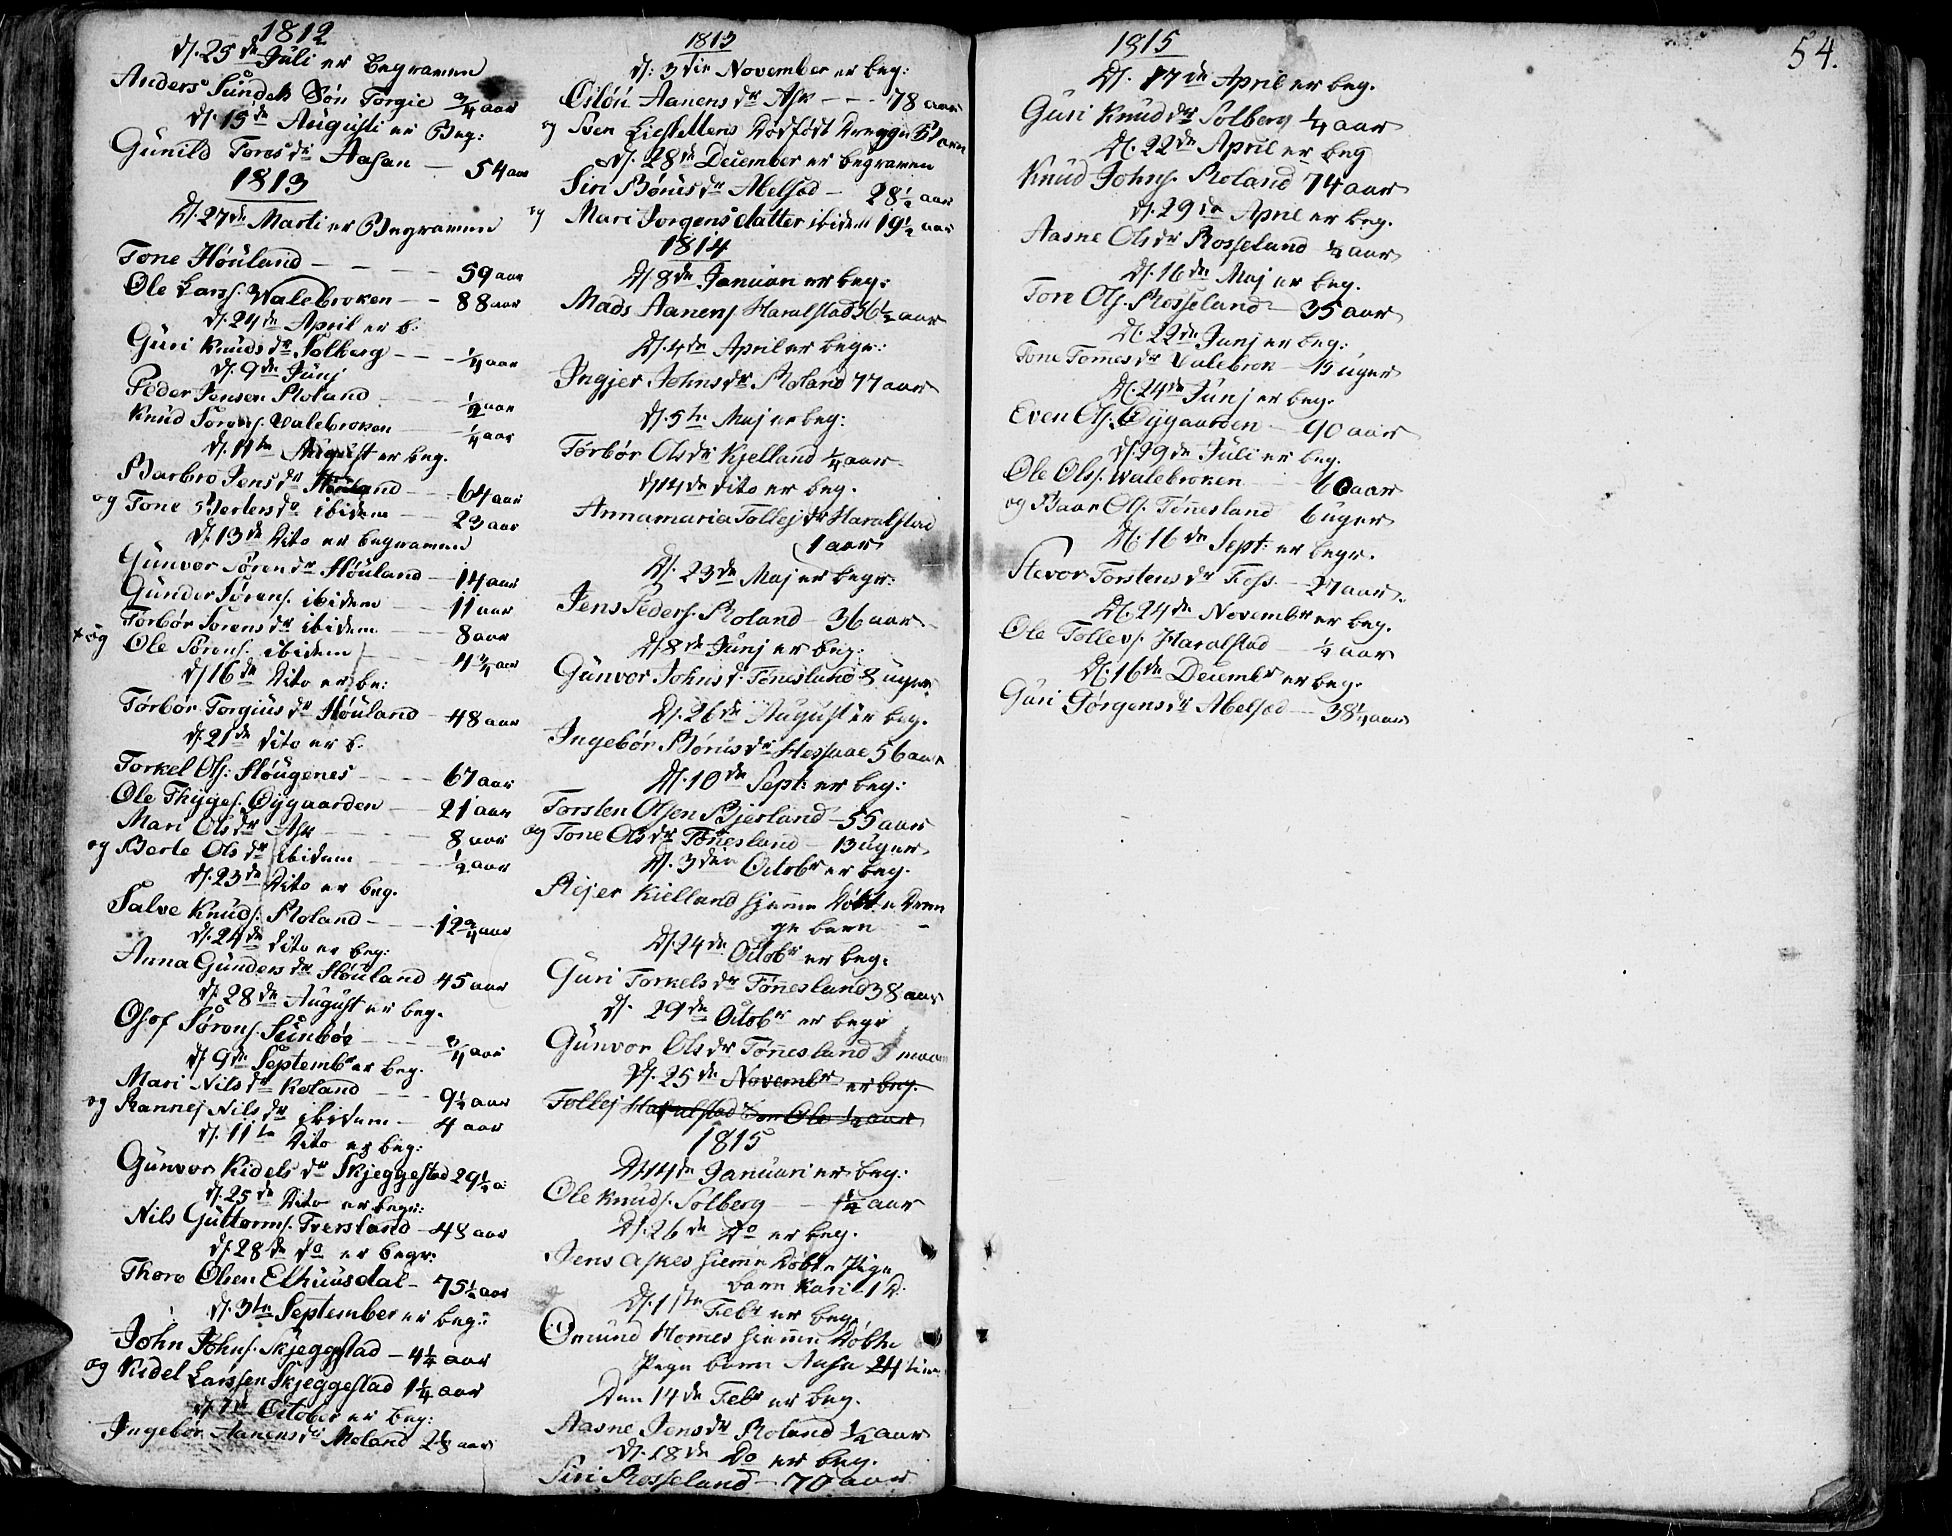 1812
d. 25de Juli er begraven
Anders Sundets Søn Torgie 3/4 aar
d. 15de Augusti er Beg:
Gunild Tores dr Aasan — 54 aar
1813
D. 27de Marti er Begraven
Tone Höuland — 59 aar
Ole Lars. Walebroken — 88 aar
d. 24de April er b:
Guri Knuds dr Solberg — 1/4 aar
d. 9de Junj
Peder Jensen Roland — 1/2 aar
Knud Sørens. Valebroken — 1/4 aar
d. 11te August er beg.
Barbro Jens dr Höuland — 64 aar
og Tone Bertes dr ibidem — 23 aar
d. 13de Dito er begraven
Gunvor Søren dr Höuland — 14 aar
Gunder Sørens. ibidem — 11 aar
Torbör Sørens dr ibidem — 8 aar
og Ole Sørens. ibidem — 4 3/4 aar
d. 16de Dito er be:
Torbör Torgius dr Höuland — 48 aar
d. 21de dito er b.
Torkel Ols: Höugenes — 67 aar
Ole Thyges. Øygaarden — 21 aar
Mari Ols dr Ask — 8 aar
og Berte Ols dr ibidem — 1/2 aar
d. 23de Dito er beg.
Salve Knuds. Roland — 12 3/4 aar
d. 24de dito er beg:
Anna Gunders dr Höuland 45 aar
d. 28de August er beg.
Osof Sørens. Sunböe — 3/4 aar
d. 9de Septembr er beg.
Mari Nils dr Roland — 9 1/2 aar
og Rannej Nils dr ibidem — 4 aar
d. 11te Dito er beg:
Gunvor Kidels dr Skjeggestad 29 1/2 a:
d. 25de Dito er begr:
Nils Guttorms. Tversland — 48 aar
d. 28de do er begr:
Thore Olsen Elhuusdal — 75 1/2 aar
d. 3te September er beg:
John Johns. Skjeggestad — 4 1/4 aar
og Kidel Larssen Skjeggestad 1 1/4 aar
d. 7de October er beg:
Ingebör Aanens dr Moland 28 aar
1813
d: 3die November er beg:
Aanens dr Ask — 78 aar
og Sven Liestellens dødfødt Drenge Barn
D. 28de December er begraven
Siri Börues dr Abelsød — 28 1/2 aar
og Mari Jorgens datter ibidem 19 1/2 aar
1814
D. 8de Januari er beg:
Mads Aanens Haralstad 36 1/2 aar
D. 4de April er begr:
Ingjer Johns dr Roland 77 aar
D. 5te Maj er beg:
Torbör Ols dr Kjelland 1/4 aar
d. 14de dito er beg.
Annamaria Tollejs dr Haralstad
1 aar
D. 23de Maj er begr:
Jens Peders. Roland — 36 aar
D. 8de Junj er beg:
Gunvor Johns d. Tønesland 8 uger
D. 26de August er beg.
Ingebör Börues dr Hessaae 56 aar
D. 10de Sept: er beg:
Torsten Olsen Bjerland — 55 aar
og Tone Ols dr Tønesland — 13 uger
D. 3die Octobr er beg.
Rejer Kielland hjemme døbte Dren
ge barn
D. 24de Octobr er beg:
Guri Torkels dr Tønnesland 38 aar
d. 29de Octobr er begr
Gunvor Ols dr Tønnesland 5 maan
D. 25de Novembr er beg.
Tollej Haralstad Søn Ole 1/4 aar
1815
D. 14de Januari er beg:
Ole Knuds. Solberg — 1 1/2 aar
D. 26de Do er beg.
Jens Askes hieme døbte Pige
barn Kari 1 D.
D. 1ste Febr er beg
Omund Homes hieme døbte
Pige barn Aase 24 time
Den 14de Febr er beg.
Aasne Jens dr Roland 1/2 aar
D. 18de Do er beg.
Siri Rosseland — 70 aar
54.
1815
D. 17de April er beg.
Guri Knud dr Solberg 1/4 aar
D. 22de April er beg
Knud Johns. Roland 74 aar
D. 29de April er beg.
Aasne Ols dr Rosseland 1/4 aar
D. 16de Maj er beg.
Tore Ols. Rosseland — 35 aar
D. 22de Junj er beg:
Tone Tomes dr Valebrok — 15 uger
D. 24de Junj er beg.
Even Ols. Øygaarden — 90 aar
D. 29de Juli er beg.
Ole Ols. Walebroken — 60 aar
og Baar Ols. Tönnesland 6 uger
D. 16de Sept: er begr.
Stevor Torstens dr Foss. — 27 aar.
D. 24de Novembr er beg.
Ole Tollevs. Haralstad — 1/4 aar
D. 16de Decembr er beg.
Guri Jørgens dr Abelsød — 38 1/4 aar